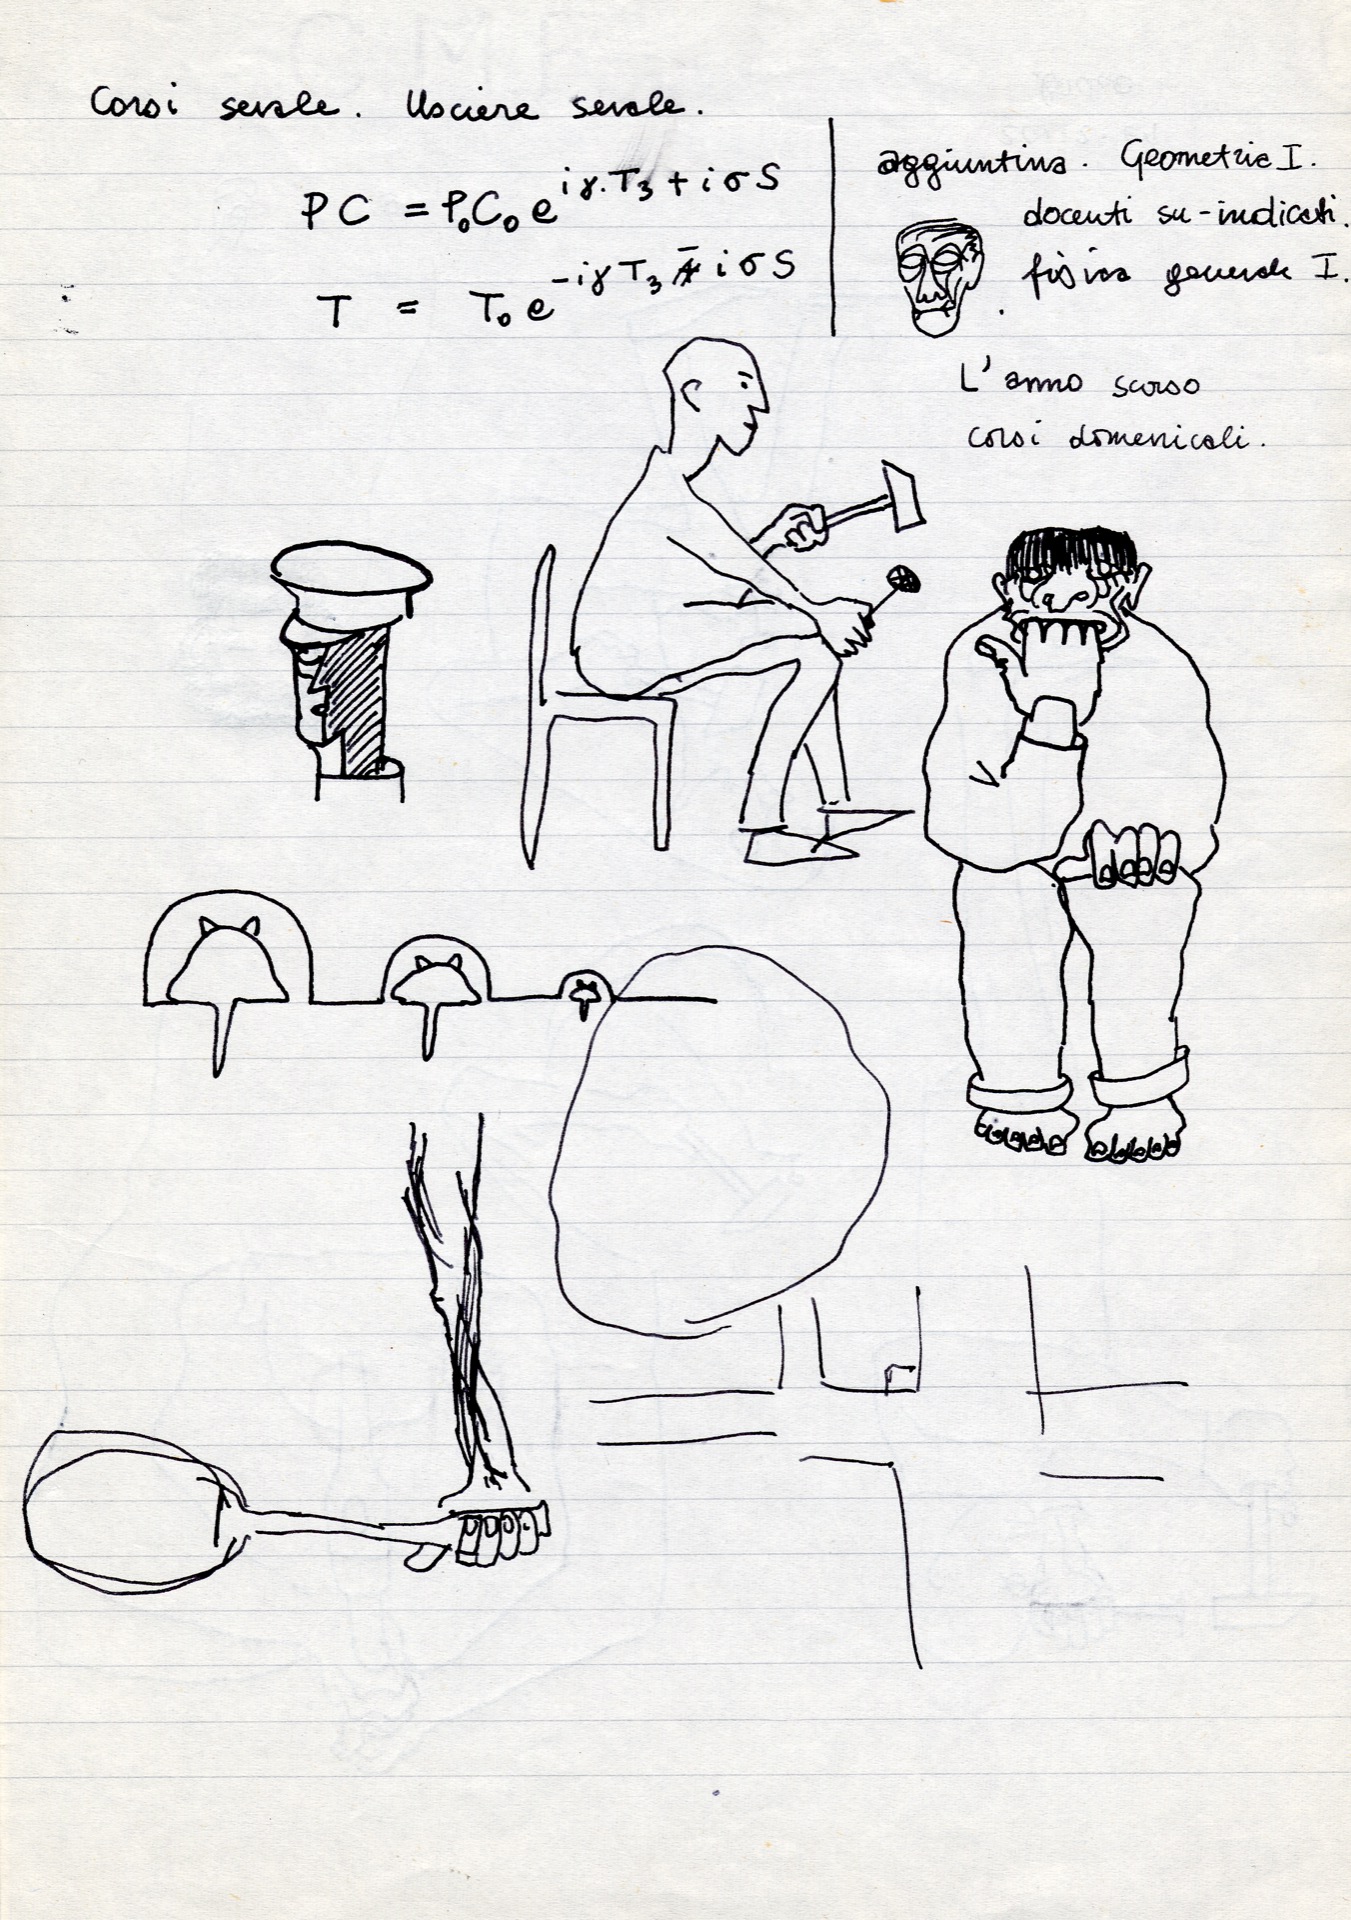 Corsi serale. Usciere serale.
PC = P₀C₀ e^{iγ.T₃ + iσS}
T = T₀ e^{-iγT₃ - iσS}
aggiuntina. Geometria I.
docenti su-indicati.
fisica generale I.
L'anno scorso
corsi domenicali.